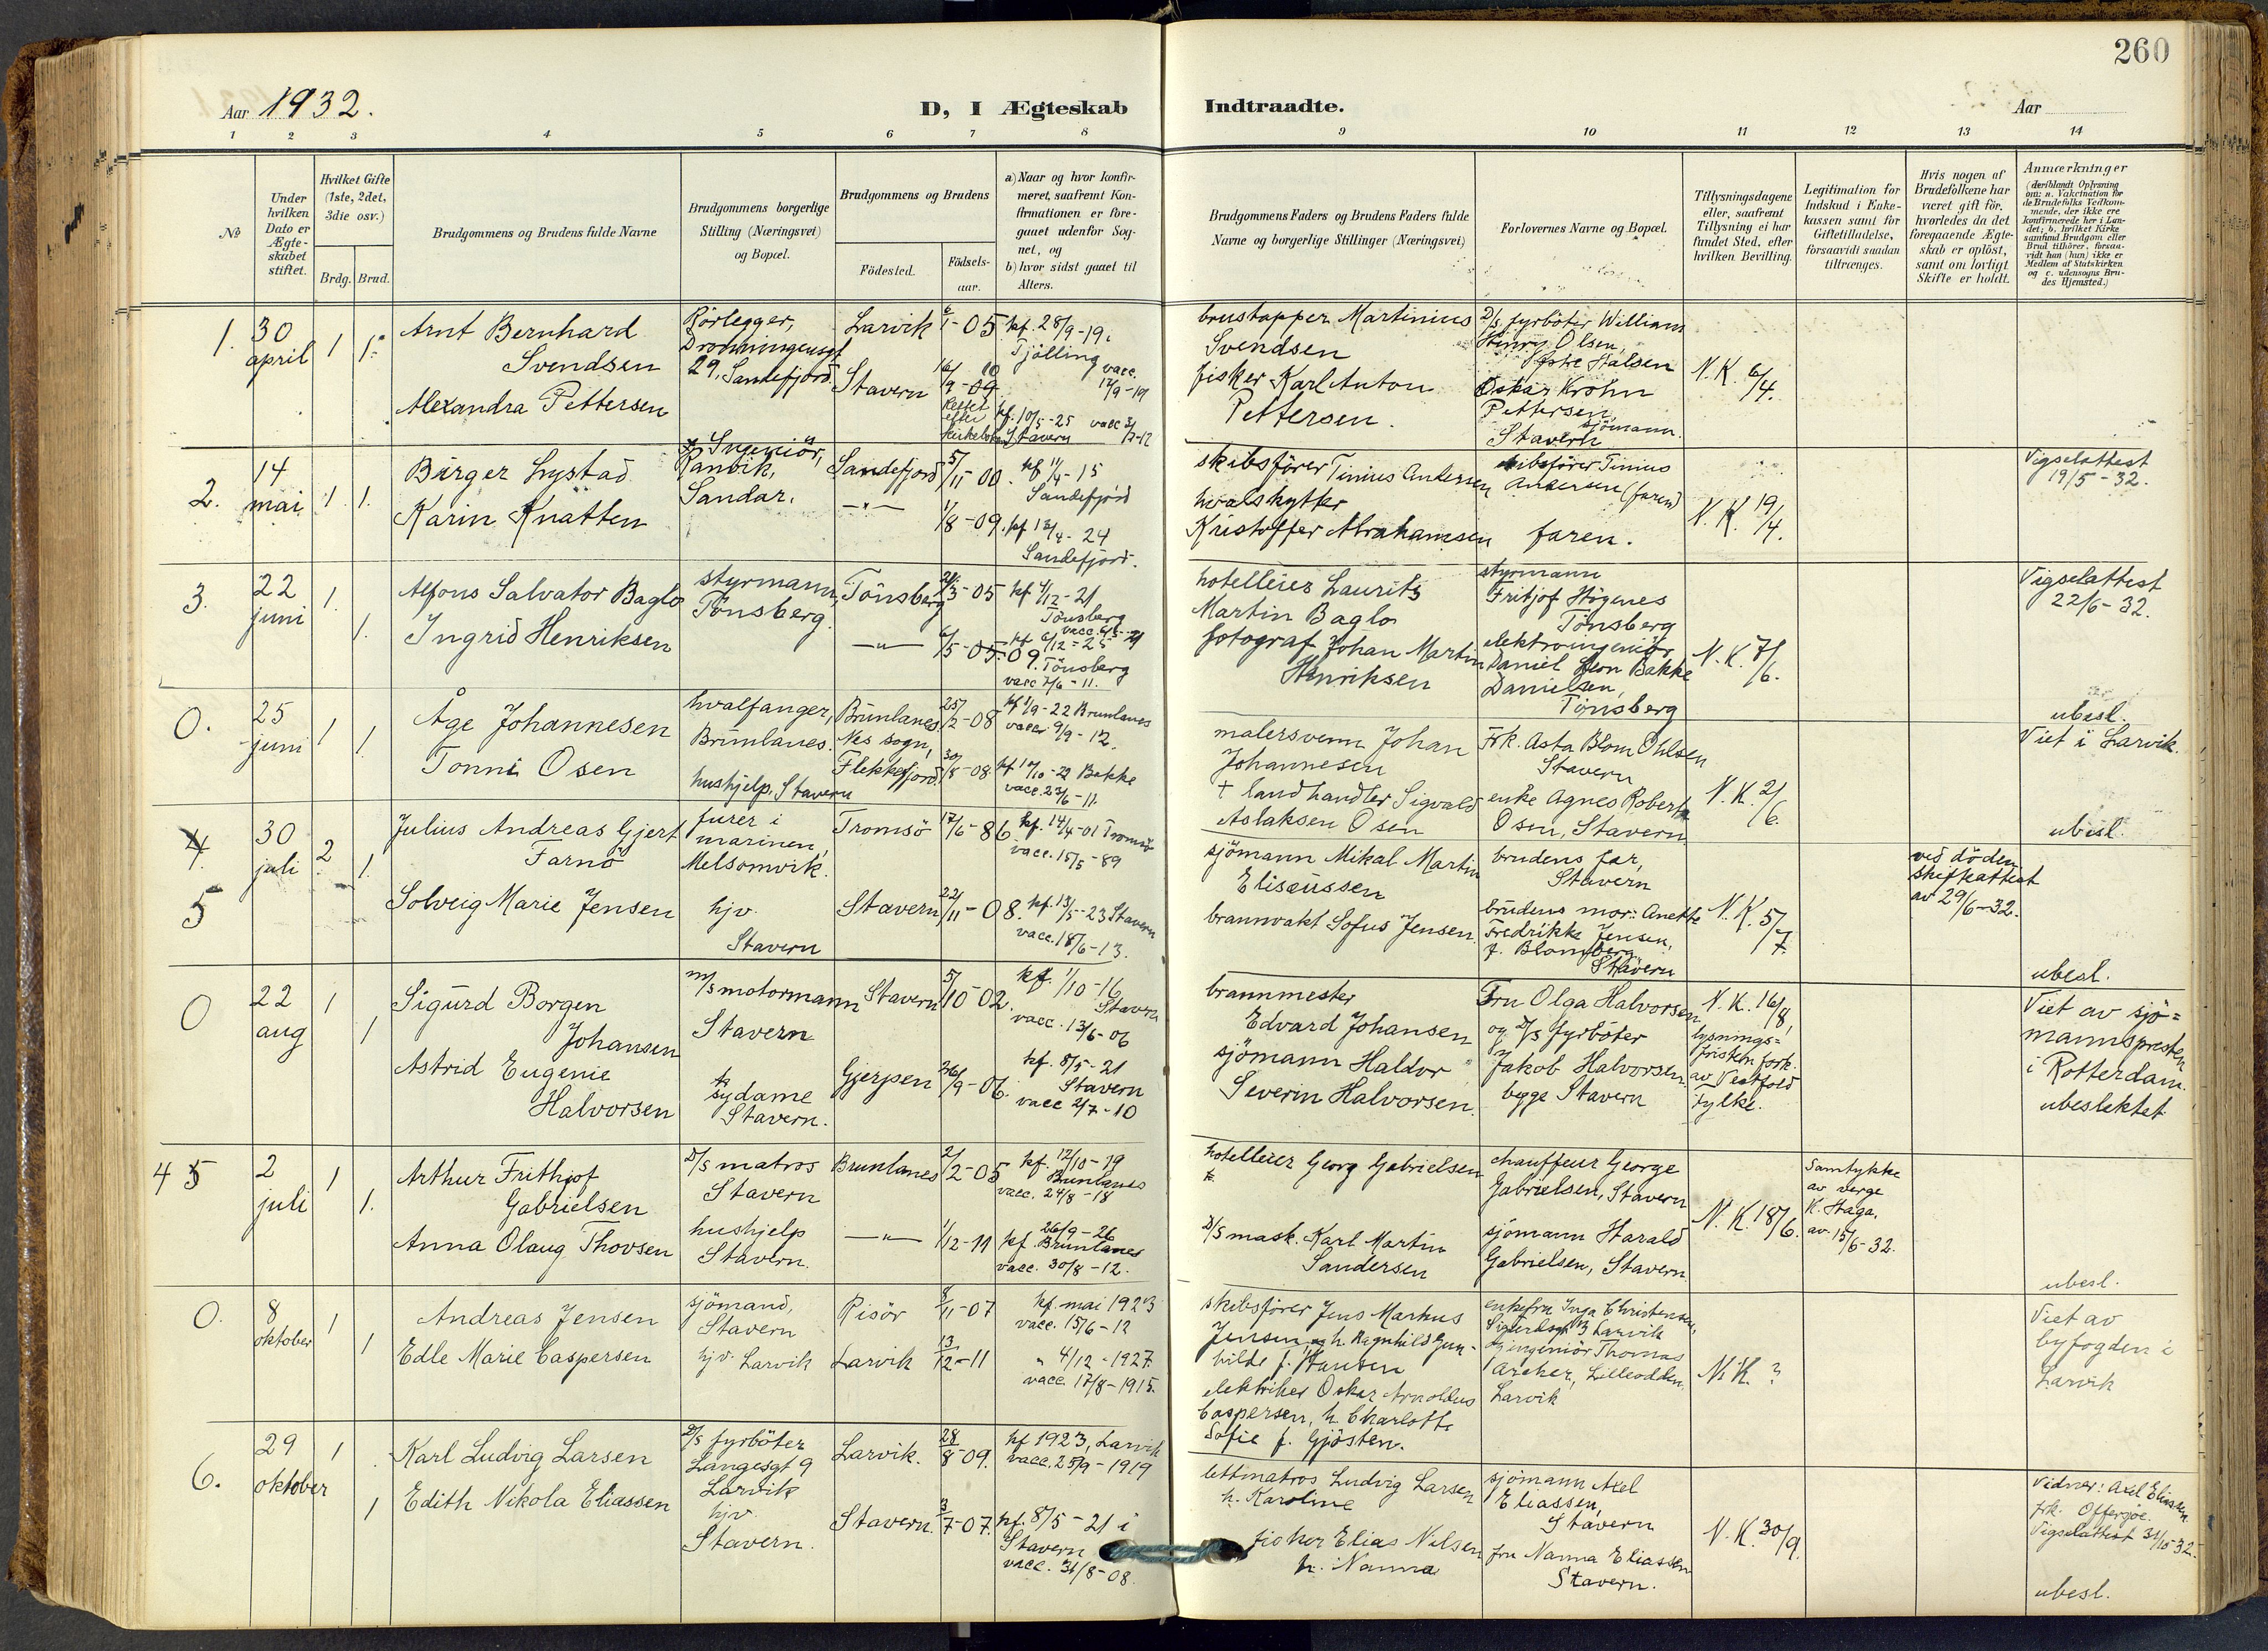 260
Aar 1932.
D, I Ægteskab Indtraadte.
Aar
1 2 3 4 5 6 7 8 9 10 11 12 13 14
No
Under hvilken Dato er Ægteskabet stiftet.
Hvilket Gifte (1ste, 2det, 3die osv.)
Brdg. Brud.
Brudgommens og Brudens fulde Navne
Brudgommens borgerlige Stilling (Næringsvei) og Bopæl.
Brudgommens og Brudens
Födested.
Födsels-aar.
a) Naar og hvor konfir-
meret, saafremt Kon-
firmationen er fore-
gaaet udenfor Sog-
net, og
b) hvor sidst gaaet til
Alters.
Brudgommens Faders og Brudens Faders fulde
Navne og borgerlige Stillinger (Næringsvei)
Forlovernes Navne og Bopæl.
Tillysningsdagene
eller, saafremt
Tillysning ei har
fundet Sted, efter
hvilken Bevilling.
Legitimation for
Indskud i Enke-
kassen samt for
Giftetilladelse,
forsaavidt saadan
tiltrænges.
Hvis nogen af
Brudefolkene har
været gift för,
hvorledes da det
foregaaende Ægte-
skab er oplöst,
samt om lovligt
Skifte er holdt.
Anmærkninger
(deriblandt Oplysning
om: a. Vakcination for
de Brudefolks Vedkom-
mende, der ikke ere
konfirmerede her i Lan-
det; b. hvilket Kirke-
samfund Brudgom eller
Brud tilhörer, forsaa-
vidt han (hun) ikke er
Medlem af Statskirken
og c. udensogns Bru-
des Hjemsted.)
1. 30 april 1 1.
Arnt Bernhard
Svendsen
Alexandra Pettersen
Rörlegger,
Dronningensgt
29, Sandefjord.
Larvik 6/1-05
kf. 28/9-19.
Tjölling
vacc.
17/9-19
Stavern 16/9-09
kf. 10/5-25 vacc 3/7-12
Stavern
brustapper Martinius
Svendsen
fisker Karl Anton
Pettersen.
D/s fyrböter William
Henry Olsen,
Halsen
Oskar Krohn
Pettersen,
sjömann.
Stavern
N.K. 6/4.
2. 14 mai 1. 1.
Birger Lystad
Karin Knatten
Ingeniör,
Ranvik,
Sandar.
Sandefjord 5/11-00.
kf 11/4-15
Sandefjord
—"— 1/8-09.
kf 13/4-24
Sandefjord.
skibsförer Tinius Andersen
hvalskytter
Kristoffer Abrahamsen
skibsförer Tinius
Andersen (faren)
faren.
N.K. 19/4.
Vigselattest
19/5-32.
3. 22 juni 1. 1.
Alfons Salvator Baglo
Ingrid Henriksen
styrmann,
Tönsberg.
Tönsberg 21/3-05
kf 4/12-21
Tönsberg
—"— 6/5-05.
09. Tönsberg
vacc 7/6-11.
hotelleier Laurits
Martin Baglo
fotograf Johan Martin
Henriksen
styrmann
Fritjof Högenes
Tönsberg
elektroingeniör
Daniel Bakke
Danielsen,
Tönsberg
N.K. 7/6.
Vigselattest
22/6-32.
ubesl.
0. 25 juni 1 1
Åge Johannesen
Tonni Osen
hvalfanger,
Brunlanes.
hushjelp, Stavern
Brunlanes. 25/2-08
Nes sogn,
Flekkefjord. 30/8-08.
kf 1/9-22 Brunlanes
vacc. 9/9-12.
kf 10-22 Bakke
vacc. 23/6-11.
malersvenn Johan
Johannesen
+ landhandler Sigvald
Aslaksen Osen
Frk. Asta Blom Ohlsen
Stavern
enke Agnes Roberta
Osen, Stavern
N.K. 2/6.
Viet i Larvik.
ubesl.
4. 5 30 juli 2. 1.
Julius Andreas Gjert
Farnö
Solveig Marie Jensen
furer i
marinen,
Melsomvik.
hjv.
Stavern
Tromsö 17/6-86
kf. 14/4-01 Tromsö
vacc. 15/5-89
Stavern 22/11-08.
kf. 13/5-23 Stavern
vacc. 18/6-13.
sjömann Mikal Martin
Eliseussen
brannvakt Sofus Jensen.
brudens far,
Stavern
brudens mor: Anette
Fredrikke Jensen,
f. Blomberg
Stavern
N.K. 5/7.
ved döden
skifteattest
av 29/6-32.
ubesl.
0 22 aug 1 1
Sigurd Borgen
Johansen
Astrid Eugenie
Halvorsen
m/s motormann
Stavern
sydame
Stavern.
Stavern 5/10-02.
kf 1/10-16
Stavern
vacc. 13/6-06
Gjerpen 26/9-06.
kf. 8/5-21
Stavern
vacc 2/7-10
brannmester
Edvard Johansen
sjömann Haldor
Severin Halvorsen.
Fru Olga Halvorsen
og D/s fyrböter
Jakob Halvorsen
begge Stavern
N.K. 16/8,
lysnings=
fristen fork.
av Vestfold
fylke.
Viet av sjö=
mannspresten
i Rotterdam.
ubeslektet
4 5 2 juli 1 1.
Arthur Frithjof
Gabrielsen
Anna Olaug Thovsen
D/s matros
Stavern
hushjelp
Stavern.
Brunlanes 2/2-05
kf. 12/10-19
Brunlanes
vacc. 24/8-18
—"— 1/12-11
26/9-26
kf. Brunlanes
vacc. 30/8-12.
hotelleier Georg Gabrielsen
D/s mask. Karl Martin
Sandersen
chauffeur George
Gabrielsen, Stavern
sjömann Harald
Gabrielsen, Stavern
N.K. 18/6.
Samtykke
av verge
K. Haga,
av 15/6-32.
ubesl.
0. 8 oktober 1 1
Andreas Jensen
Edle Marie Caspersen
sjömand,
Stavern
hjv. Larvik
Risör 8/11-07
kf. mai 1923
vacc. 15/6-12
Larvik 13/12-11
" 4/12-1927.
vacc. 17/8-1915.
skibsförer Jens Markus
Jensen og h. Ragnhild Gun-
hilde f. Hansen
elektriker Oskar Arnoldus
Caspersen, h. Charlotte
Sofie f. Gjösten.
enkefru Inga Christensen,
Sigurdsgt 13 Larvik
ingeniör Thomas
Archer, Lilleodden,
Larvik
N.K. ?
Viet av
byfogden i
Larvik
6. 29 oktober 1 1
Karl Ludvig Larsen
Edith Nikola Eliassen
D/s fyrböter
Langesgt 9
Larvik
hjv.
Stavern.
Larvik. 28/8-09.
kf 1923, Larvik
vacc. 25/9-1919
Stavern. 3/7-07.
kf. 8/5-21 i
Stavern
vacc. 31/8-08.
lettmatros Ludvig Larsen
h. Karoline
fisker Elias Nilsen
h. Nanna
sjömann Axel
Eliassen,
Stavern
fru Nanna Eliassen
Stavern.
N.K. 30/9.
Vidner: Axel Eliassen
frk. Offersöe.
Vigselattest 31/10-32.
ubesl.